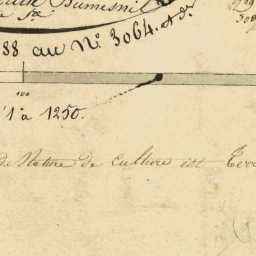 Dumesnil
88 au N.º 3064. & d.
100
1 à 1250.
de Nature de Culture est Terre